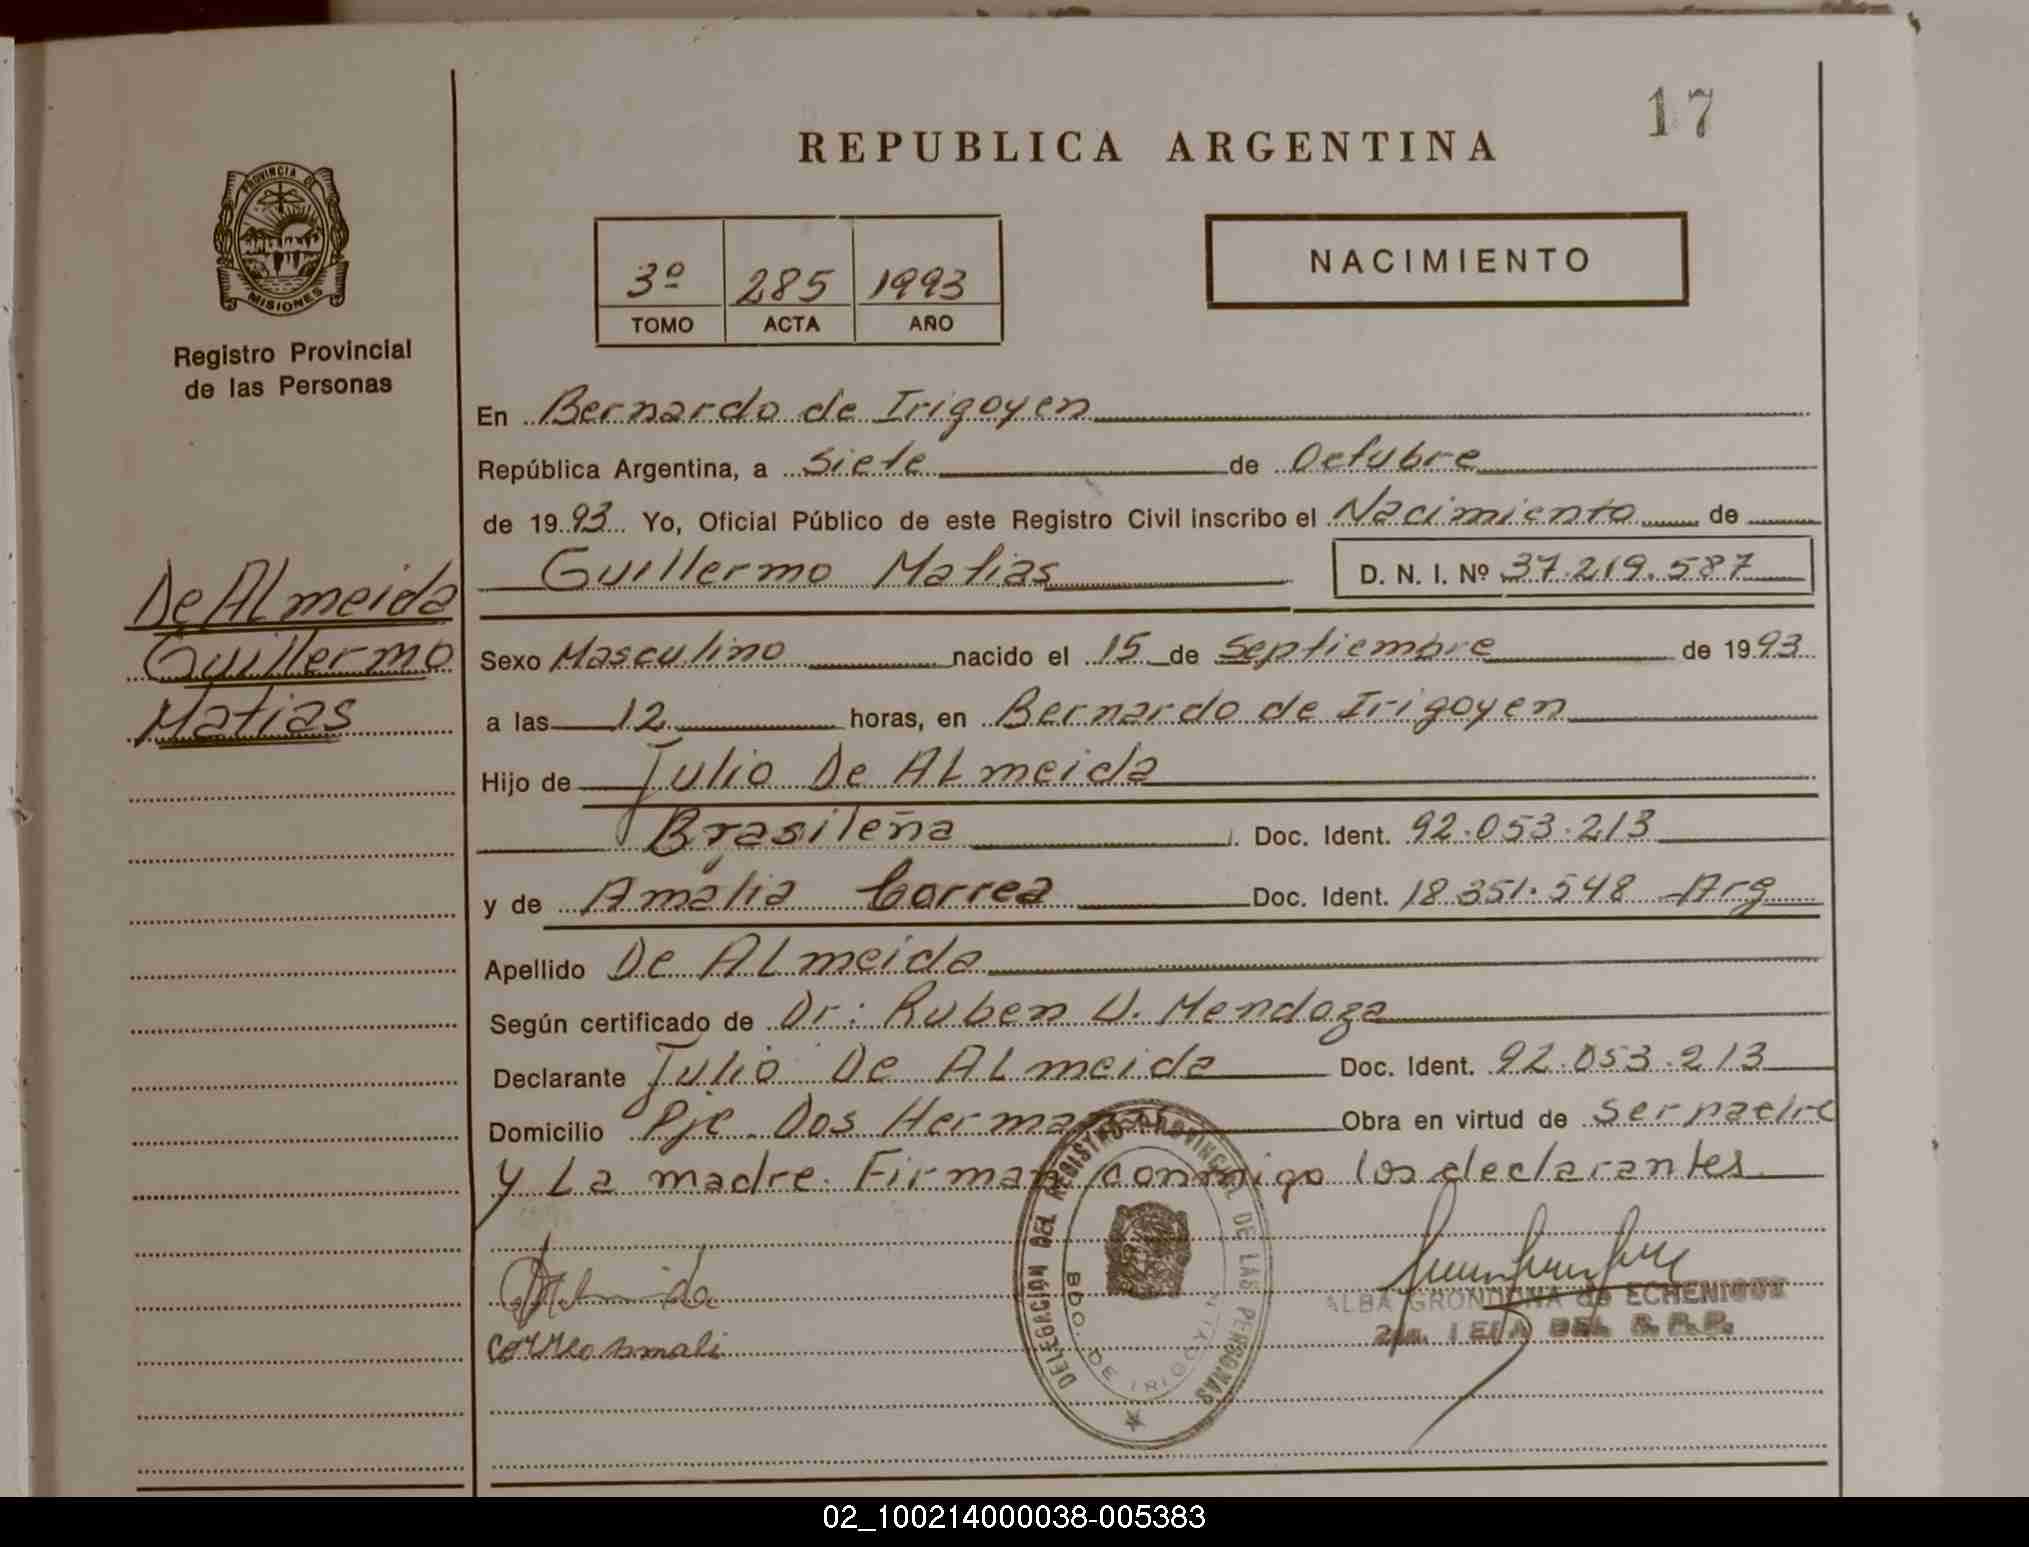 17
REPUBLICA ARGENTINA
PROVINCIA DE
MISIONES
Registro Provincial
de las Personas
3º 285 1993
TOMO ACTA AÑO
NACIMIENTO
En Bernardo de Irigoyen
República Argentina, a Siete de Octubre
de 1993 Yo, Oficial Público de este Registro Civil inscribo el Nacimiento de
Guillermo Matias D. N. I. Nº 37.219.587
De ALmeida
Guillermo
Matias
Sexo Masculino nacido el 15 de Septiembre de 1993
a las 12 horas, en Bernardo de Irigoyen
Hijo de Julio De ALmeida
Brasileña Doc. Ident. 92.053.213
y de Amalia Correa Doc. Ident. 18.351.548 Arg
Apellido De ALmeida
Según certificado de Dr: Ruben U. Mendoza
Declarante Julio De ALmeida Doc. Ident. 92.053.213
Domicilio Pje Dos Hermanas Obra en virtud de ser padre
y La madre. Firman conmigo los declarantes
DELEGACIÓN DEL REGISTRO PROVINCIAL DE LAS PERSONAS
BDO. DE IRIGOYEN
ALBA GRONDONA de ECHENIQUE
DEL R.P.P.
02_100214000038-005383